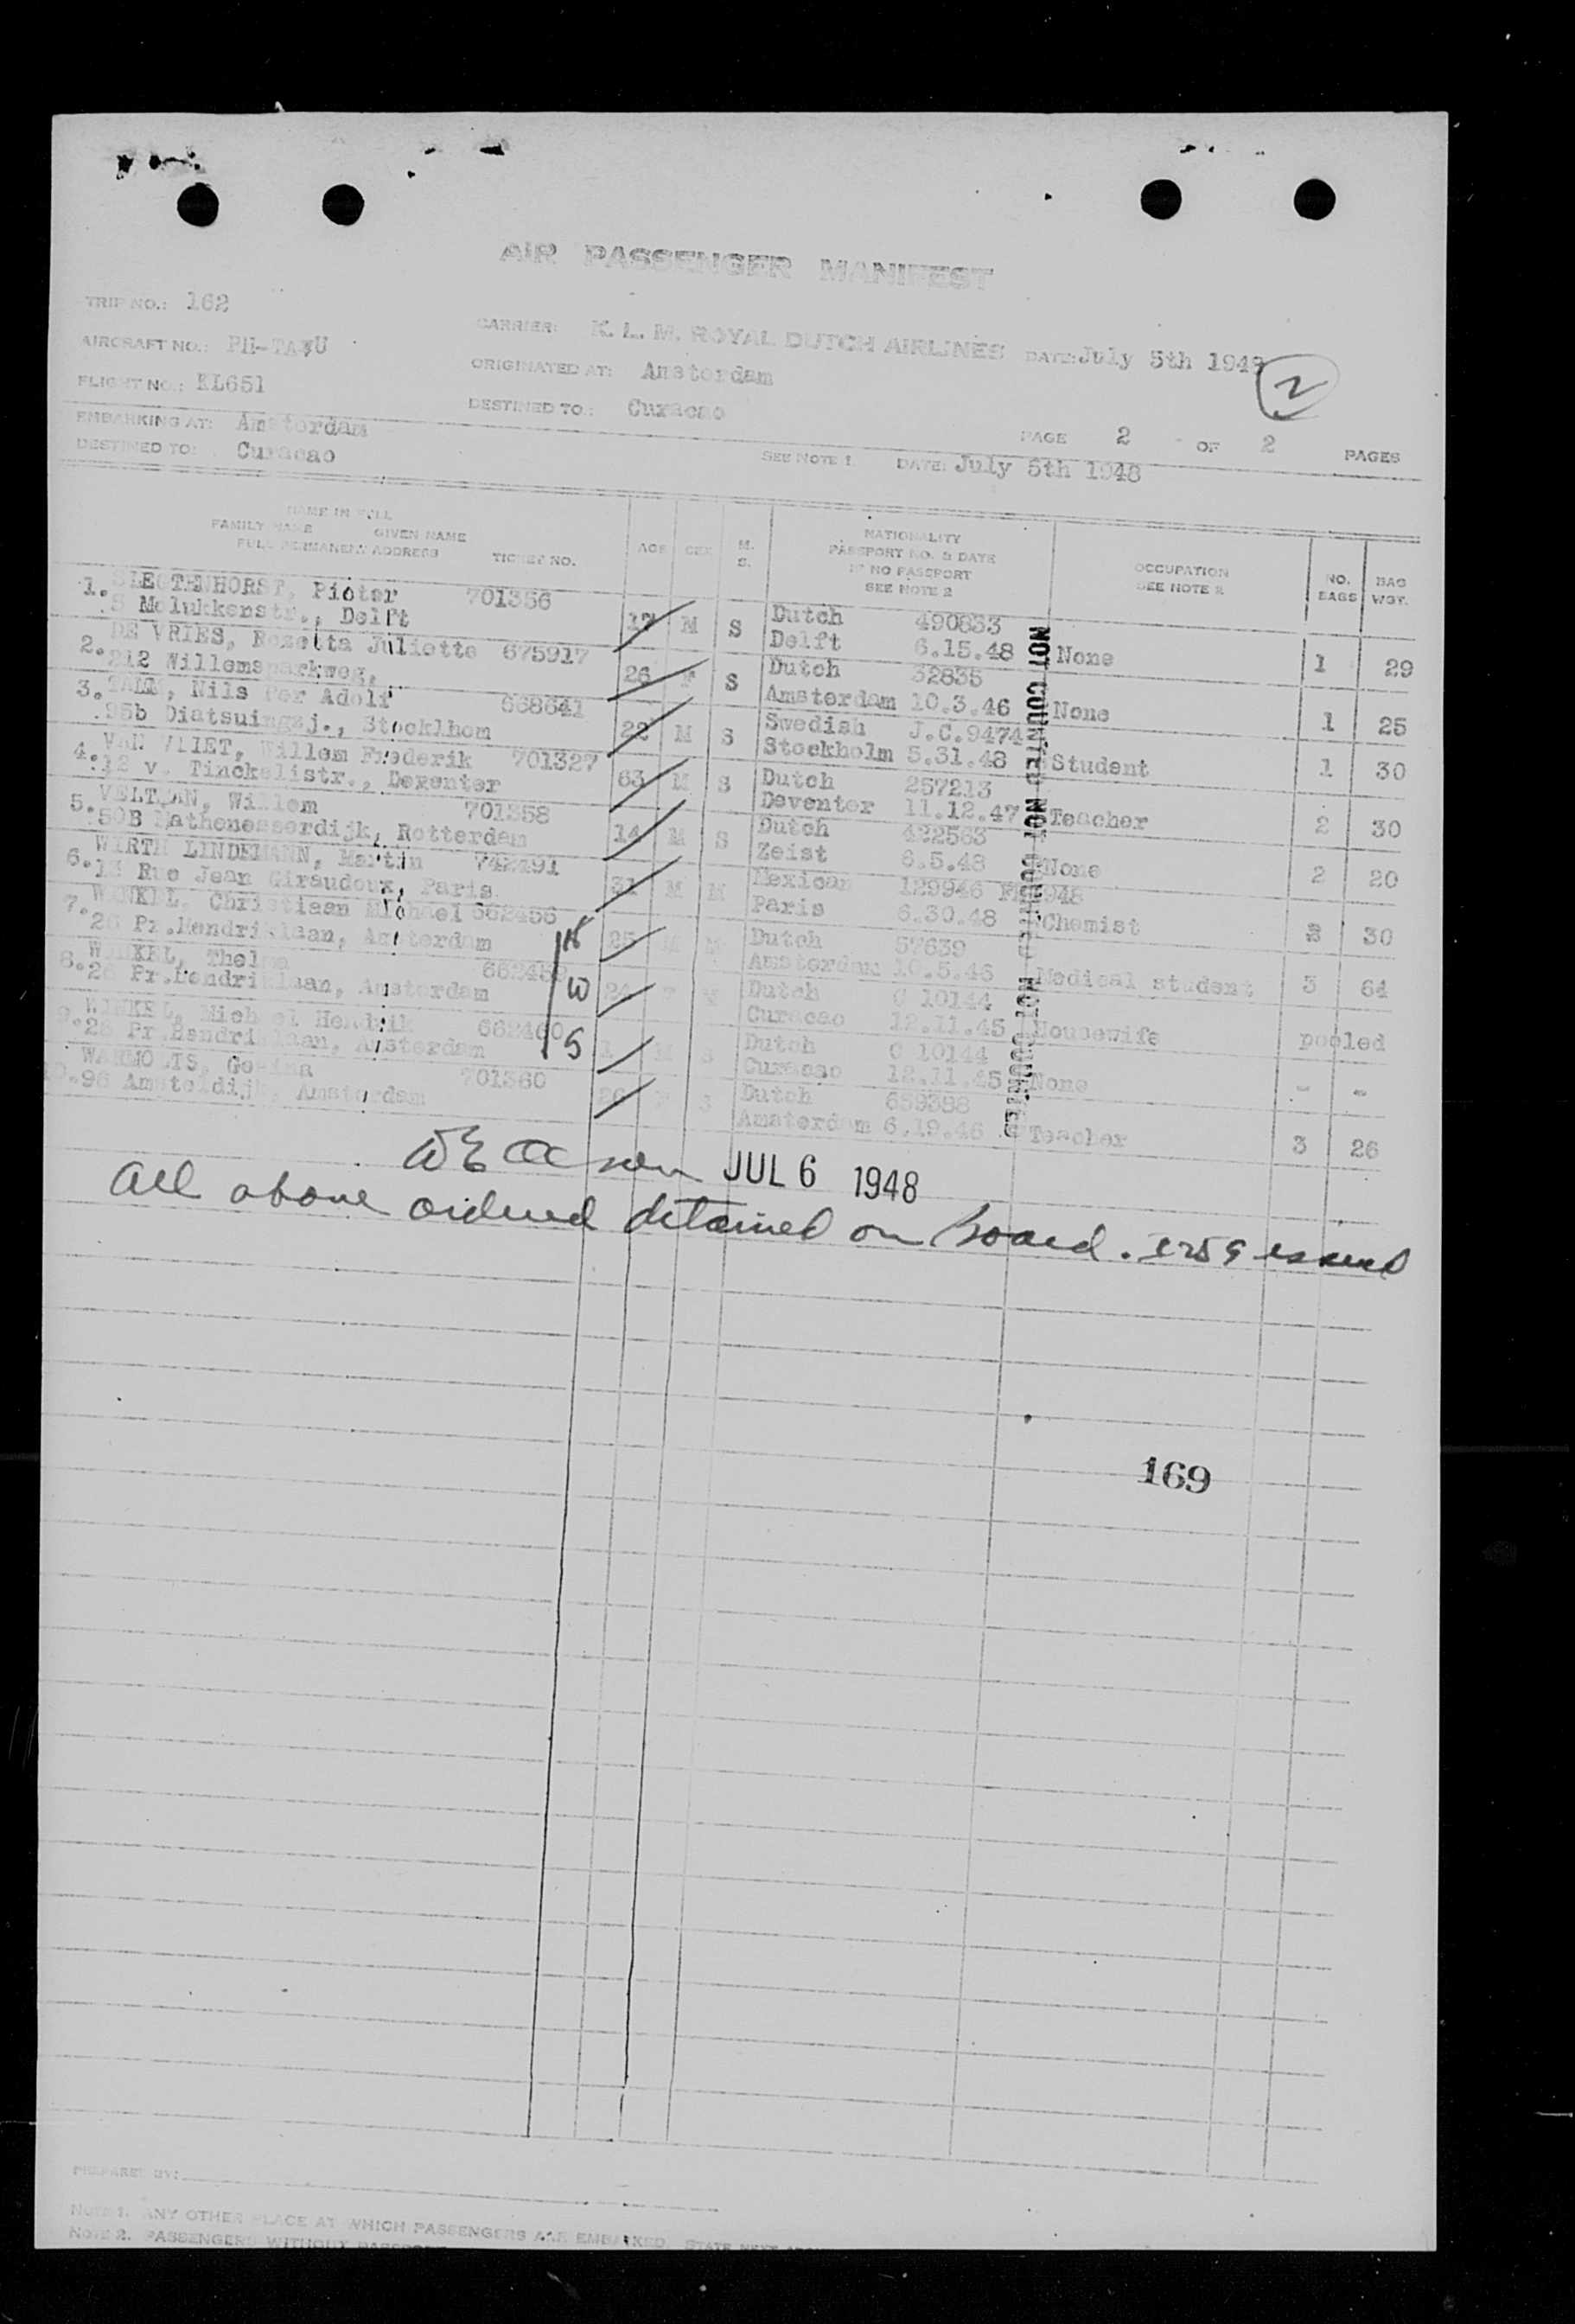 AIR PASSENGER MANIFEST
TRIP NO.: 162
CARRIER: K. L. M. ROYAL DUTCH AIRLINES DATE: July 5th 1948
AIRCRAFT NO.:
ORIGINATED AT: Amsterdam
2
FLIGHT NO.: KL651
DESTINED TO: Curacao
EMBARKING AT: Amsterdam
PAGE 2 OF 2 PAGES
DESTINED TO: Curacao
SEE NOTE 1 DATE: July 5th 1948
NAME IN FULL
FAMILY NAME GIVEN NAME
FULL PERMANENT ADDRESS TICKET NO.
AGE SEX M. S.
NATIONALITY
PASSPORT NO. & DATE
IF NO PASSPORT
SEE NOTE 2
OCCUPATION
SEE NOTE 2
NO. BAGS
BAG WGT.
1. SLEGTENHORST, Pieter 701356 17 M S Dutch 490833
5 Molukkenstr., Delft Delft 6.15.48 None 1 29
2. DE VRIES, Rozetta Juliette 675917 26 F S Dutch 32835
212 Willemsparkweg, Amsterdam 10.3.46 None 1 25
3. TAMM, Nils Per Adolf 668641 22 M S Swedish J.C.9474
95b Stocklhom Stockholm 5.31.48 Student 1 30
4. VAN VLIET, Willem Frederik 701327 63 M S Dutch 257213
12 v. Deventer Deventer 11.12.47 Teacher 2 30
5. VELTMAN, Willem 701358 14 M S Dutch 422563
50B Mathenesserdijk, Rotterdam Zeist 6.5.48 None 2 20
6. WIRTH LINDEMANN, Martin 742491 31 M M Mexican 129946
13 Rue Jean Giraudoux, Paris Paris 6.30.48 Chemist 30
7. WINKEL, Christiaan Michael 662456 25 M M Dutch 57639
26 Pr.Hendriklaan, Amsterdam Amsterdam 10.5.46 Medical student 3 64
8. WINKEL, Thelma 24 F M Dutch C 10144
26 Pr.Hendriklaan, Amsterdam Curacao 12.11.45 Housewife pooled
W
9. WINKEL, Michael Hendrik 662460 1 M S Dutch C 10144
26 Pr.Hendriklaan, Amsterdam Curacao 12.11.45 None - -
S
10. WARMOLTS, Gesina 701360 F S Dutch 659398
96 Amsteldijk, Amsterdam Amsterdam 6.19.46 Teacher 3 26
NOT COUNTED NOT COUNTED NOT COUNTED
JUL 6 1948
All above ordered detained on board. I259 issued
169
PREPARED BY:
Note 1. ANY OTHER PLACE AT WHICH PASSENGERS ARE EMBARKED, STATE NEXT
Note 2. PASSENGERS WITHOUT PASSPORT